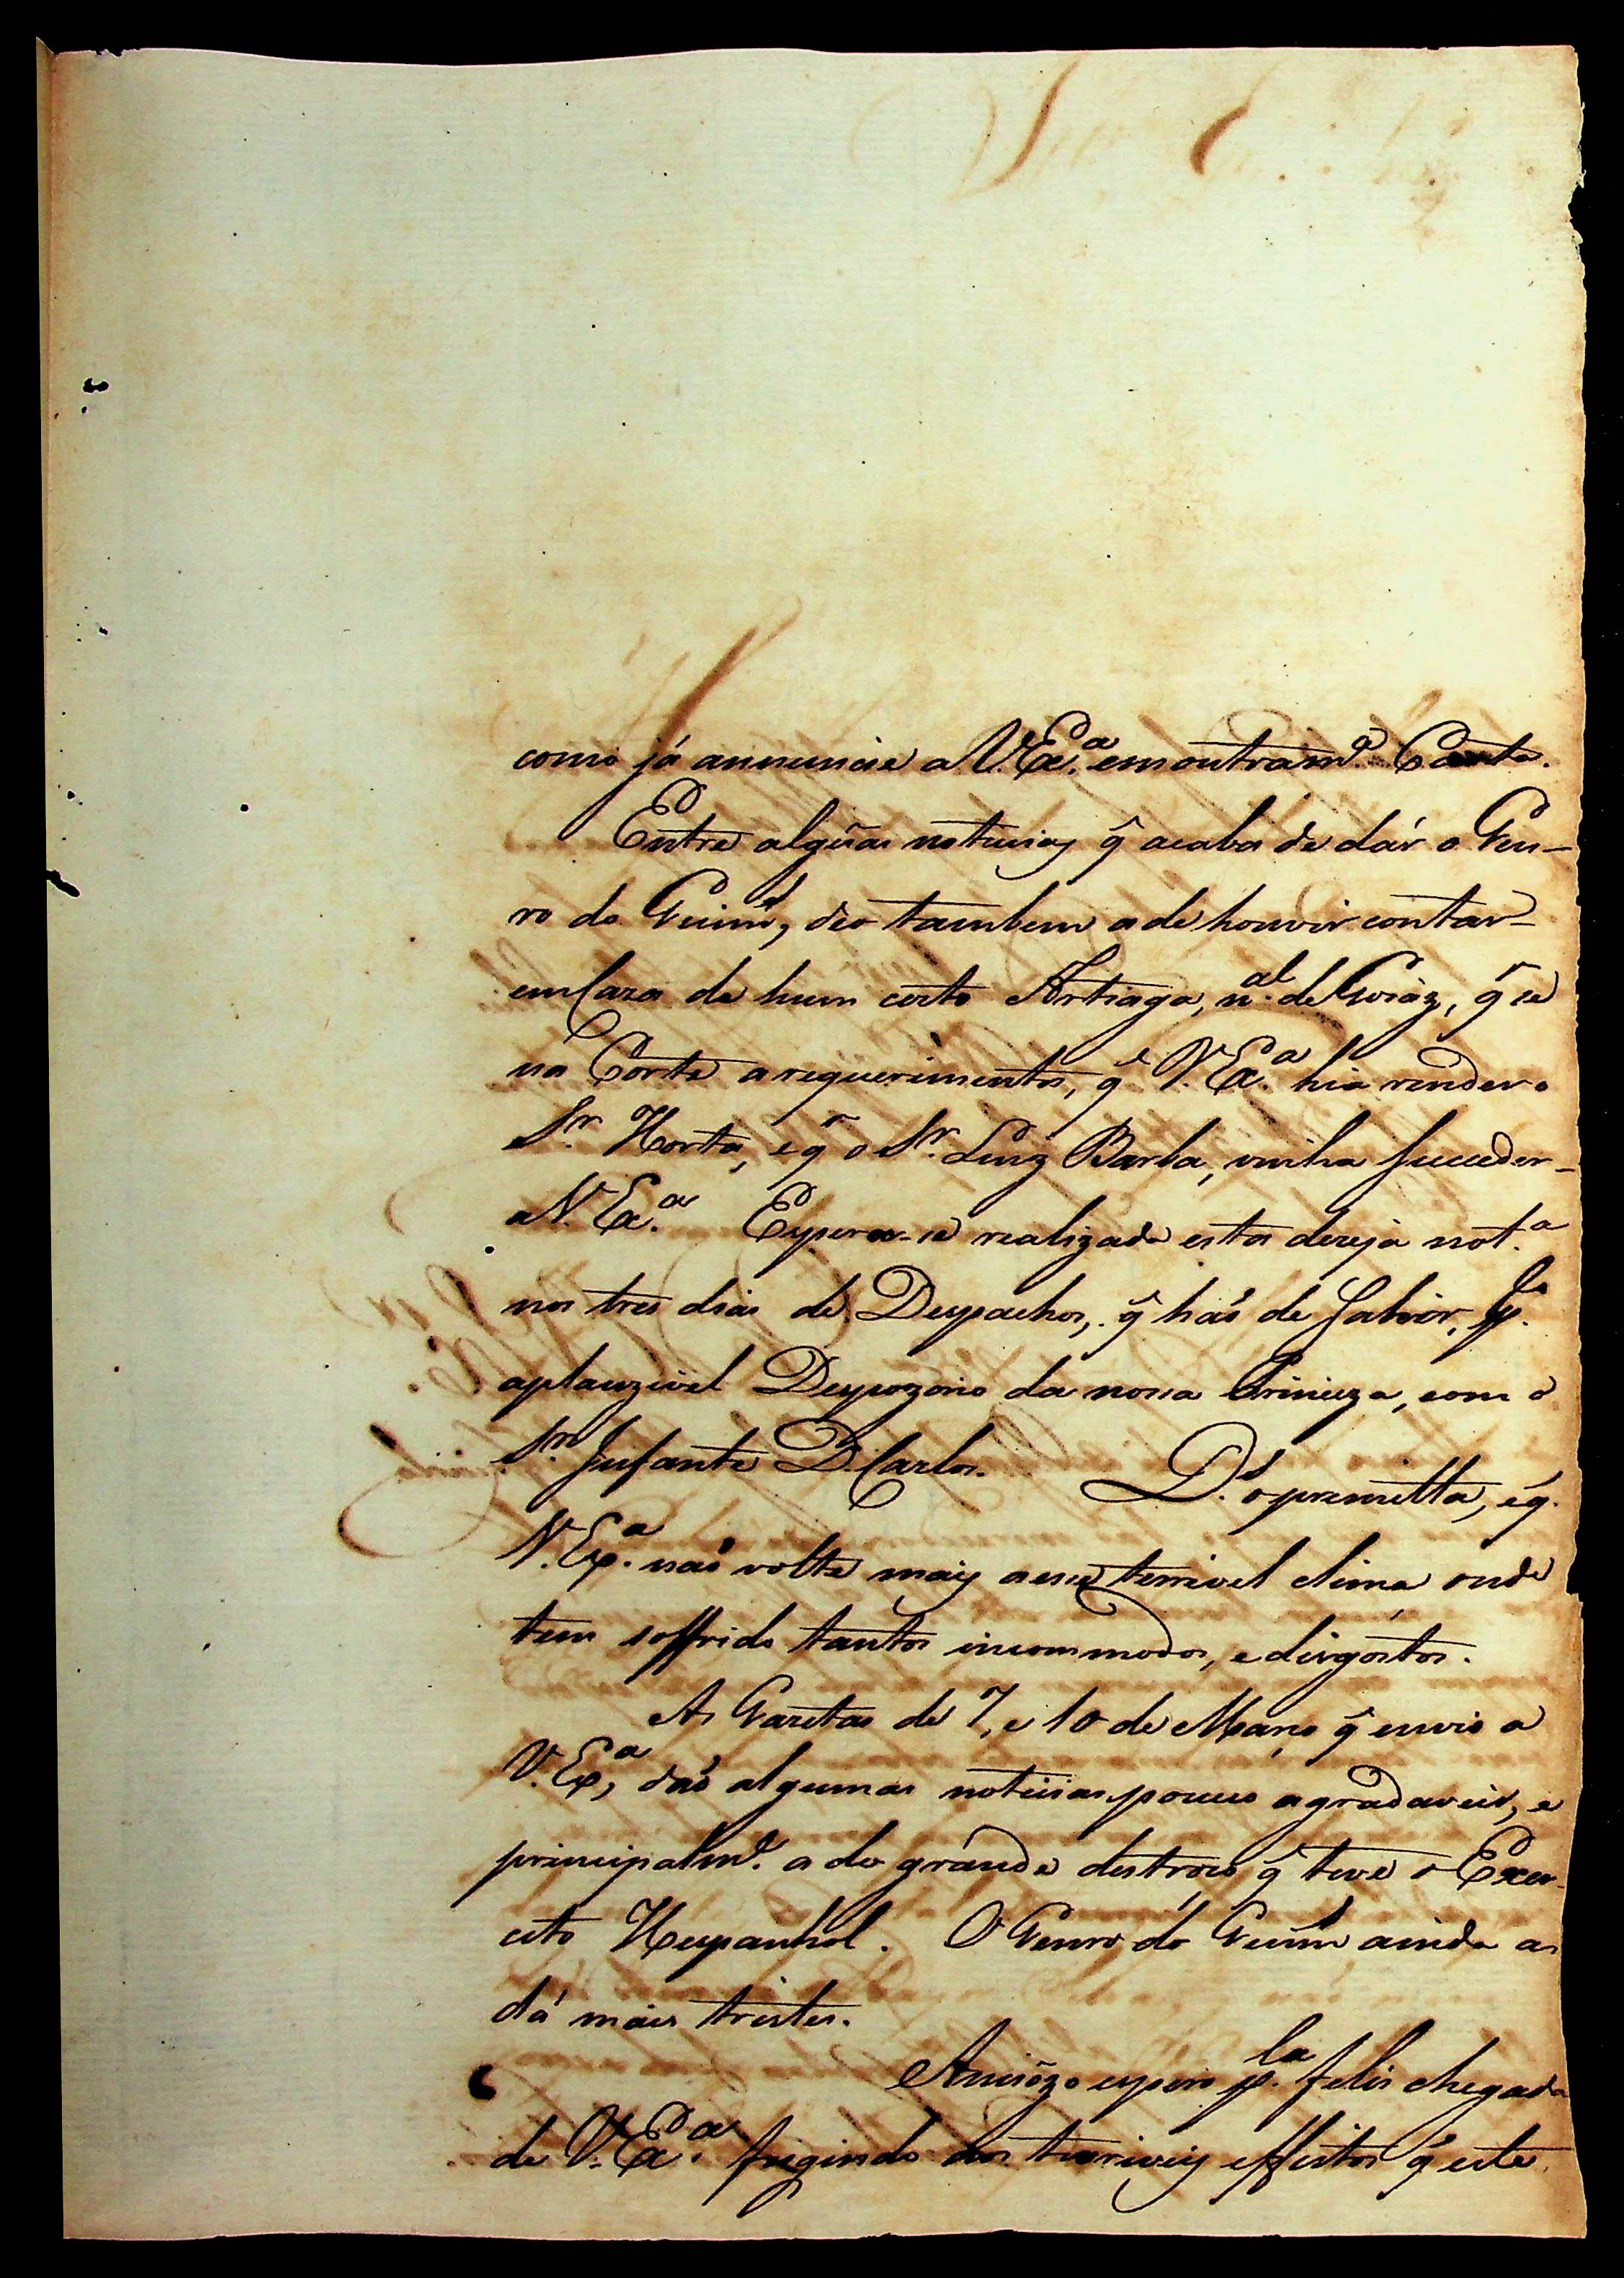 como já annuncie a V. Ex.ª em outra m.ª Carta.
Entre algũas noticias q̃ acaba de dár o Gen-
ro do Guim.es, deo tambem a de houvir contar-
em Caza de hum certo Artiaga, n.al de Goiáz, q̃ se
na Corte a requerimentos, q̃ V. Ex.ª hia render o
Sr. Horta, e q̃ o Sr. Luiz Barba, vinha succeder-
a V. Ex.ª Espera-se realizada esta dezeja not.ª
nos tres dias de Despachos, q̃ háo de sahir, p.lo
aplauzivel Despozorio da nossa Princeza, com o
Sr. Infante D. Carlos. D.s o premitta, e q̃
V. Ex.ª não volte mais a esse terrivel clima onde
tem soffrido tantos incommodos, e disgóstos.
As Gazetas de 7, e 10 de Março q̃ envio a
V. Ex.ª, dáo algumas noticias pouco agradaveis, e
principalm.e a do grande destroço q̃ teve o Exer-
cito Hespanhol. O Genro do Guim.es ainda as
dá mais tristes.
Anciózo espero p.la felis chegada
de V. Ex.ª fugindo aos terriveis effeitos q̃ este